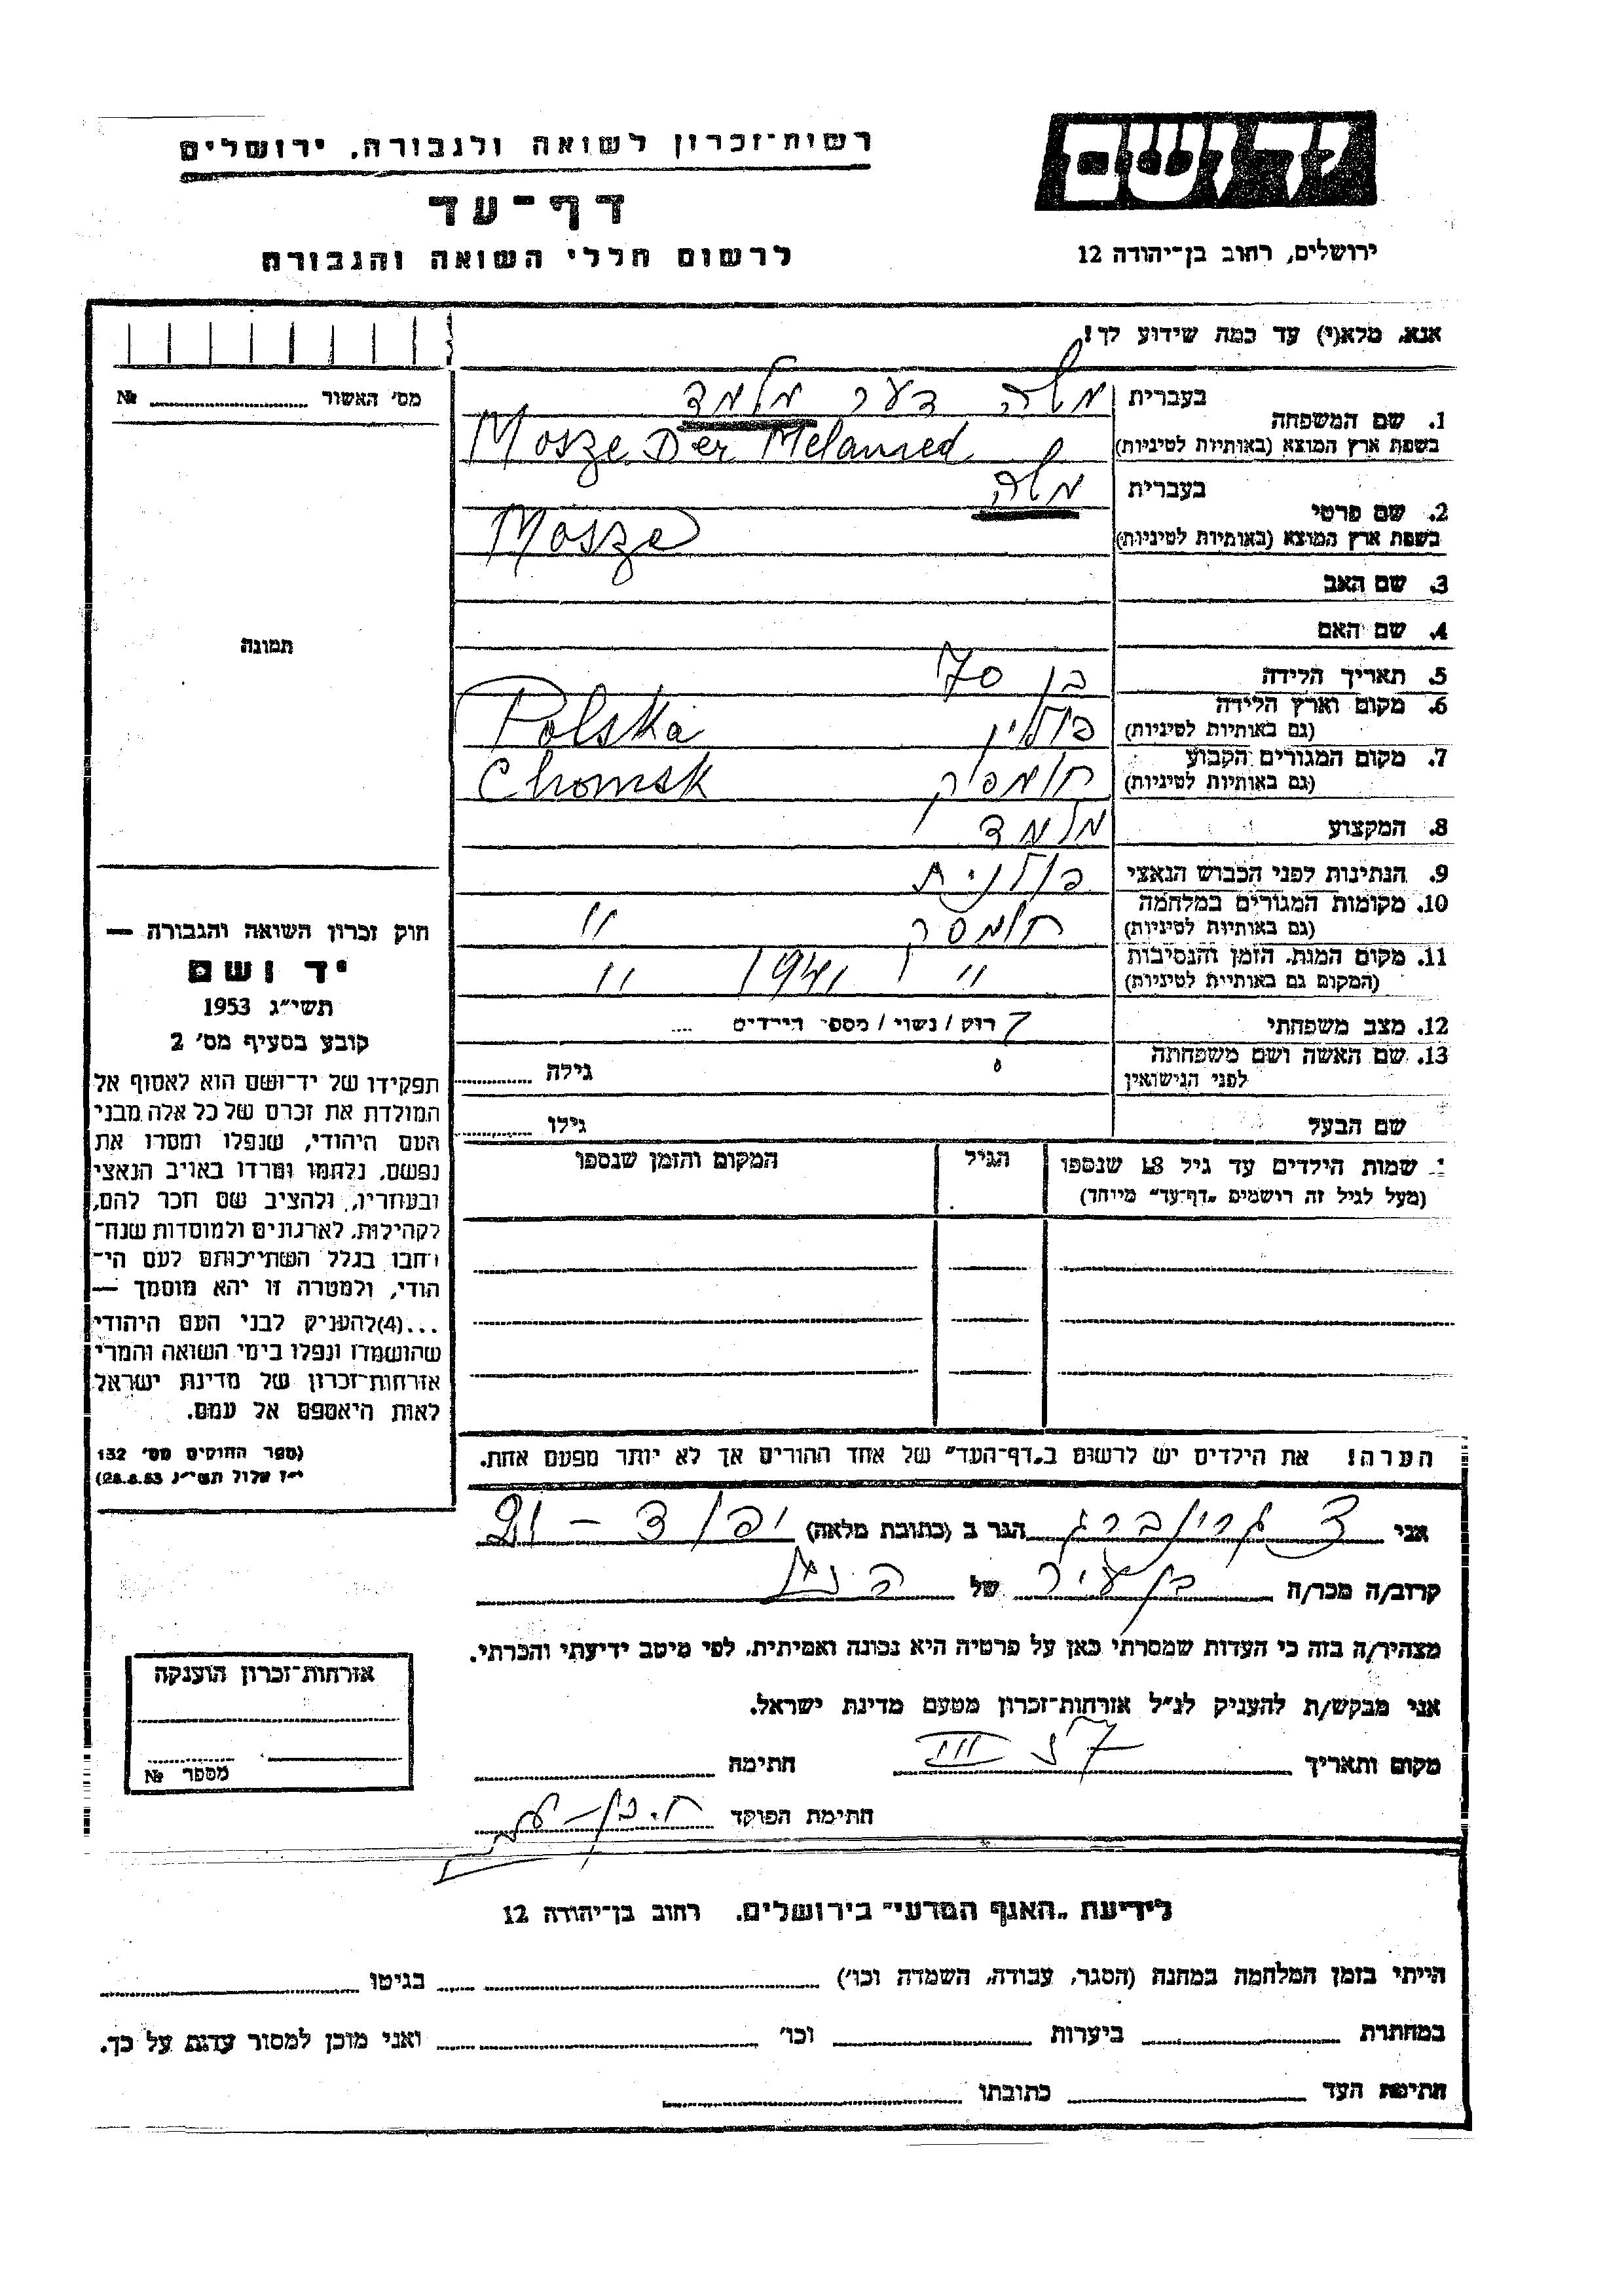 רשות־זכרון לשואה ולגבורה, ירושלים
יד ושם
דף־עד
לרשום חללי השואה והגבורה
ירושלים, רחוב בן־יהודה 12
אנא, מלא(י) עד כמה שידוע לך!
מס׳ האשור № ........
1. שם המשפחה
בעברית משה דער מלמד
בשפת ארץ המוצא (באותיות לטיניות) Mosze Der Melamed
2. שם פרטי
בעברית משה
בשפת ארץ המוצא (באותיות לטיניות) Mosze
3. שם האב
4. שם האם
5. תאריך הלידה בן 70
6. מקום וארץ הלידה (גם באותיות לטיניות) פולין Polska
7. מקום המגורים הקבוע (גם באותיות לטיניות) חומסק Chomsk
8. המקצוע מלמד
9. הנתינות לפני הכבוש הנאצי פולנית
10. מקומות המגורים במלחמה (גם באותיות לטיניות) חומסק "
11. מקום המות, הזמן והנסיבות (המקום גם באותיות לטיניות) " 1941 "
12. מצב משפחתי רוק / נשוי / מספר הילדים ....
13. שם האשה ושם משפחתה לפני הנישואין גילה ........
שם הבעל גילו ........
שמות הילדים עד גיל 18 שנספו (מעל לגיל זה רושמים „דף־עד" מיוחד)
הגיל
המקום והזמן שנספו
הערה! את הילדים יש לרשום ב„דף־העד" של אחד ההורים אך לא יותר מפעם אחת.
תמונה
חוק זכרון השואה והגבורה —
יד ושם
תשי״ג 1953
קובע בסעיף מס׳ 2
תפקידו של יד־ושם הוא לאסוף אל
המולדת את זכרם של כל אלה מבני
העם היהודי, שנפלו ומסרו את
נפשם, נלחמו ומרדו באויב הנאצי
ובעוזריו, ולהציב שם וזכר להם,
לקהילות, לארגונים ולמוסדות שנח־
רבו בגלל השתייכותם לעם הי־
הודי, ולמטרה זו יהא מוסמך —
...(4)להעניק לבני העם היהודי
שהושמדו ונפלו בימי השואה והמרי
אזרחות־זכרון של מדינת ישראל
לאות היאספם אל עמם.
(ספר החוקים מס׳ 132
י״ז אלול תשי״ג 28.8.53)
אני צ גרינברג הגר ב (כתובת מלאה) יפו
קרוב/ה מכר/ה בן עיר של הנ"ל
מצהיר/ה בזה כי העדות שמסרתי כאן על פרטיה היא נכונה ואמיתית, לפי מיטב ידיעתי והכרתי.
אני מבקש/ת להעניק לנ״ל אזרחות־זכרון מטעם מדינת ישראל.
מקום ותאריך III 57 חתימה
חתימת הפוקד
אזרחות־זכרון הוענקה
מספר №
לידיעת „האגף המדעי" בירושלים, רחוב בן־יהודה 12
הייתי בזמן המלחמה במחנה (הסגר, עבודה, השמדה וכו׳) בגיטו
במחתרת ביערות וכו׳ ואני מוכן למסור עדות על כך.
חתימת העד כתובתו